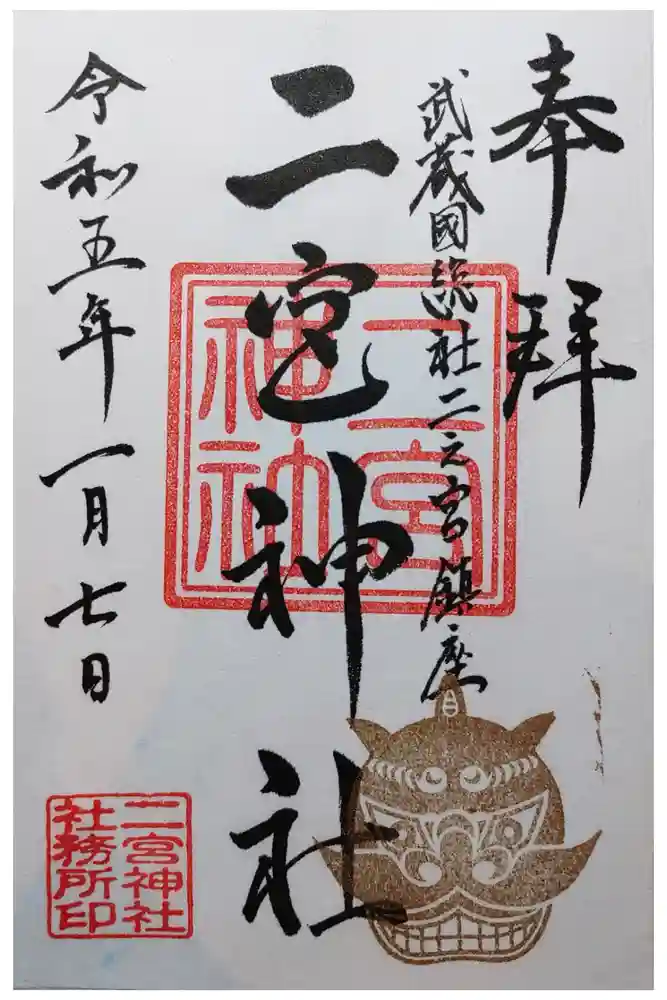 奉拝
武蔵國総社二之宮鎮座
二宮神社
令和五年一月七日
二宮神社
二宮神社
社務所印